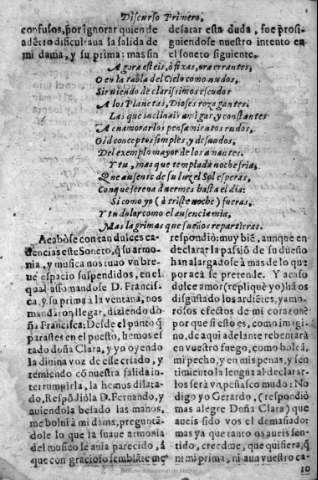 Discurso Primero,
confusos, por ignorar quien de
adentro dificultaua la salida de
mi dama, y su prima: mas sin
desatar esta duda, fue prosi-
guiendose nuestro intento en
el soneto siguiente.
Agora esteis, ò fixas, ora errantes,
O en la tabla del Cielo como nudos,
Siruiendo de clarissimos escudos
A los Planetas, Dioses rozagantes:
Las que inclinais amigas, y constantes
A enamorarlos pensamientos rudos,
Oid conceptos simples, y desnudos,
Del exemplo mayor de los amantes.
Y tu, mas que templada noche fria,
Que ausente de su luz el Sol esperas,
Con que serena duermes hasta el dia:
Si como yo (ò triste noche) fueras,
Y tu dolor como el ausencia mia,
Mas lagrimas que sueños repartieras.
Acabòse con tan dulces ca-
dencias este Soneto, q̃ su armo-
nia, y musica nos tuuo vn bre-
ue espacio suspendidos, en el
qual assomandose D. Francis-
ca, y su prima à la ventana, nos
mandaron llegar, diziendo do
ña Francisca: Desde el punto q̃
parastes en el puesto, hemos es
tado doña Clara, y yo oyendo
la diuina voz de esse criado, y
temiendo cõ nuestra salida in-
terrumpirla, la hemos dilata-
do. Respõdiòla D. Fernando, y
auiendola besado las manos,
me boluì a mi dama, preguntã-
dole lo que la suaue armonia
del musico le auia parecido, à
que con gracioso semblãte me
respondiò: muy biẽ, aunque en
declarar la passiõ de su dueño
han alargadose à mas de lo que
por acà se pretende. Y acaso
dulce amor (repliquè yo) hã os
disgustado los ardiẽtes, y amo-
rosos efectos de mi coraçon?
por que si esto es, como imagi-
no, de aqui adelante rebentarà
en vuestro fuego, como bolcã,
mi pecho, y en mis penas, y sen
timiento la lengua al declarar-
los serà vn peñasco mudo: No
digo yo Gerardo, (respondiò
mas alegre Doña Clara) que
aueis sido vos el demasiado:
mas ya que tanto os aueis sen-
tido, creedme, que quisiera, q̃
ni mi prima, ni aun vuestro ca-
10